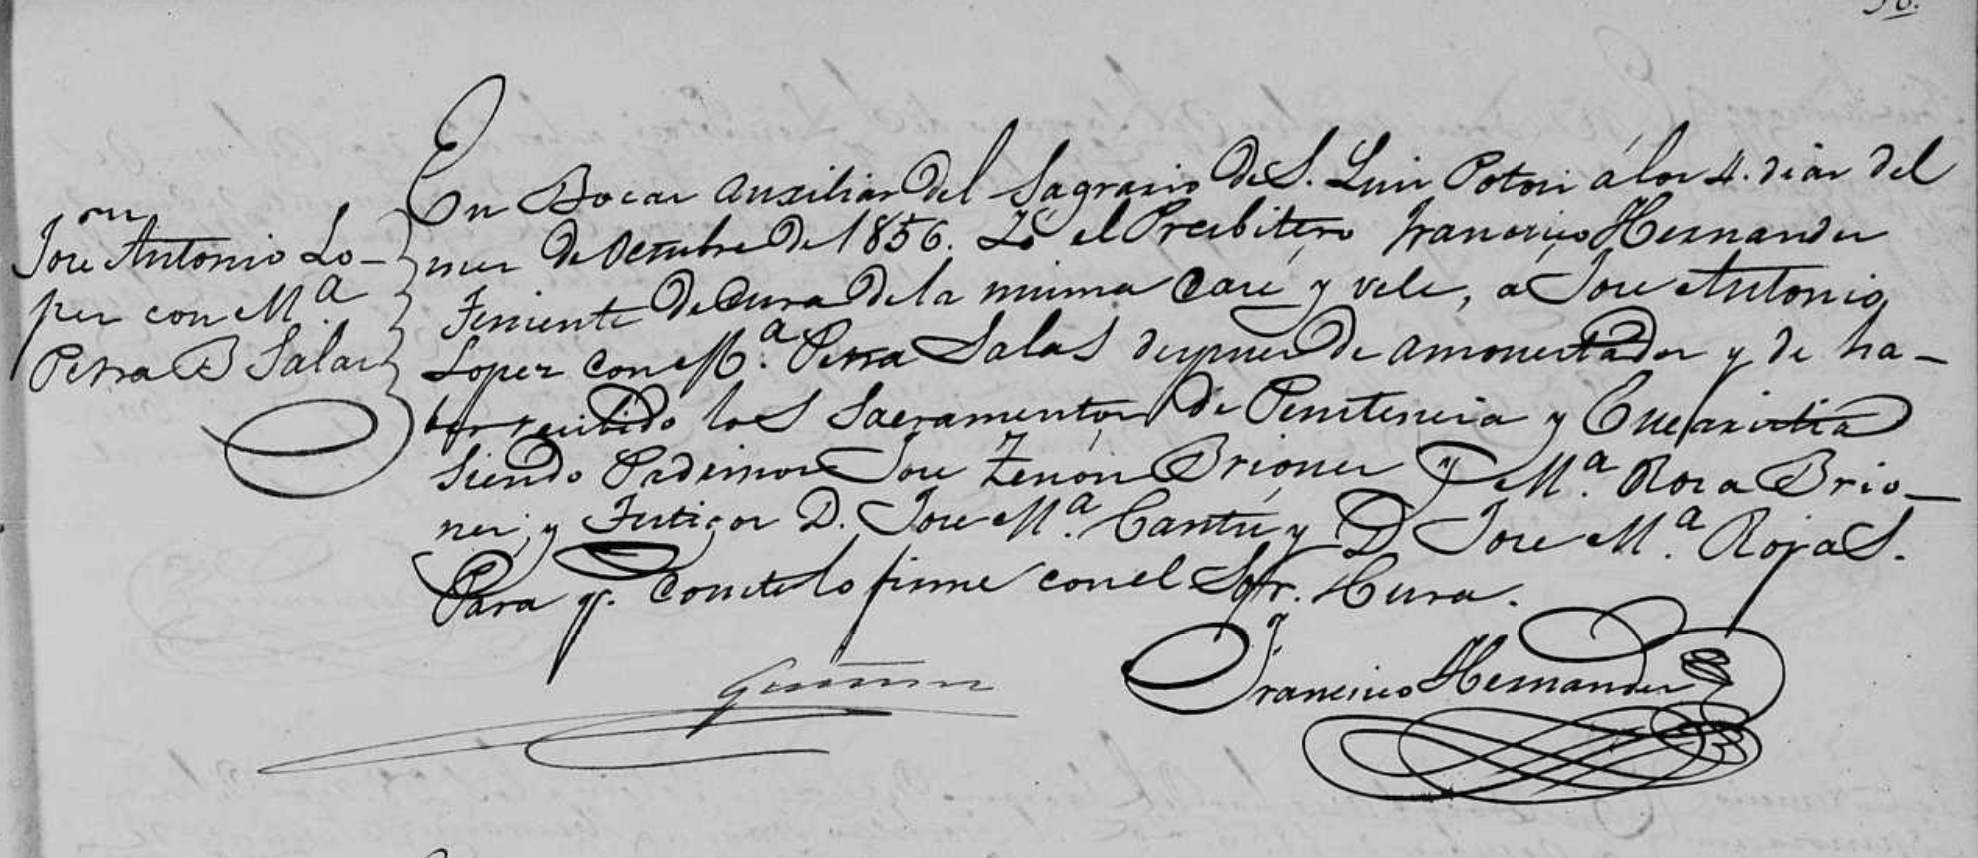 Jose Antonio Lo-
pez con Ma.
Petra B Salas
En Bocas auxiliar del Sagrario de S. Luis Potosi á los 4. dias del
mes de Octubre de 1856. Yó el Presbitero Francisco Hernandez
Teniente de Cura de la misma Casé y velé, a Jose Antonio
Lopez con Ma. Petra Salas despues de amonestados y de ha-
ber recibido los Sacramentos de Penitencia y Eucaristia
siendo Padrinos Jose Zenón Briones y Ma. Rosa Brio-
nes; y Testigos D. Jose Ma. Cantú y D Jose Ma. Rojas.
Para q. conste lo firmé con el Sor. Cura.
Francisco Hernandez